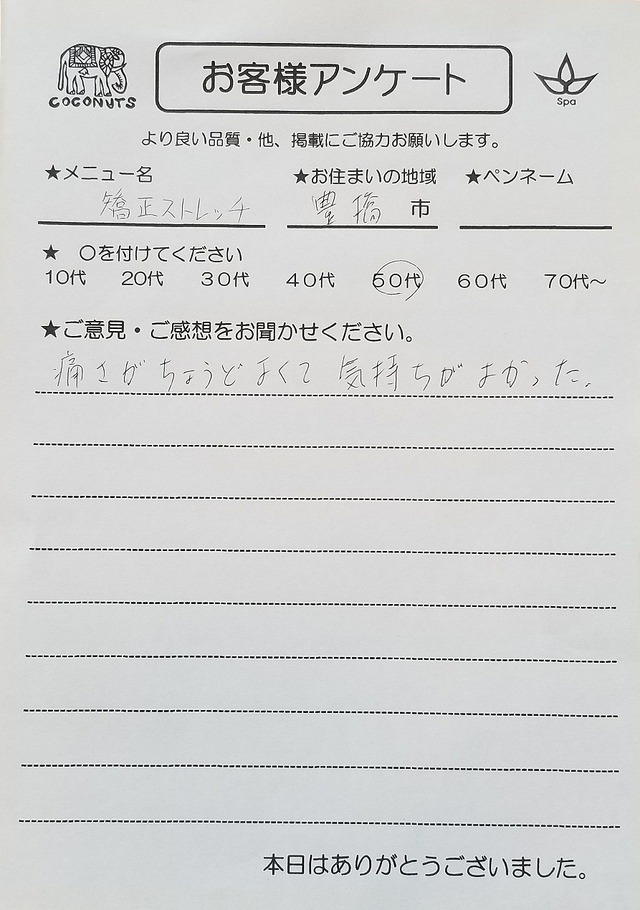 COCONUTS
お客様アンケート
Spa
より良い品質・他、掲載にご協力お願いします。
★メニュー名 ★お住まいの地域 ★ペンネーム
矯正ストレッチ 豊橋 市
★ 〇を付けてください
10代 20代 30代 40代 50代 60代 70代～
★ご意見・ご感想をお聞かせください。
痛さがちょうどよくて 気持ちがよかった。
本日はありがとうございました。